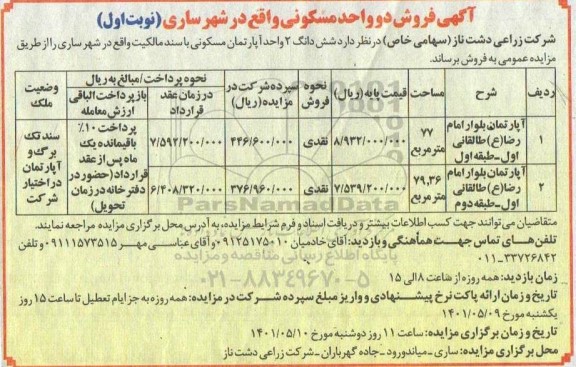 آگهی فروش دو واحد مسکونی واقع در شهر ساری (نوبت اول)
شرکت زراعی دشت ناز (سهامی خاص) در نظر دارد شش دانگ ۲ واحد آپارتمان مسکونی با سند مالکیت واقع در شهر ساری را از طریق
مزایده عمومی به فروش برساند.
ردیف | شرح | مساحت | قیمت پایه (ریال) | نحوه فروش | سپرده شرکت در مزایده (ریال) | نحوه پرداخت/مبالغ به ریال | وضعیت ملک
در زمان عقد قرارداد | باز پرداخت الباقی ارزش معامله
۱ | آپارتمان بلوار امام رضا(ع) طالقانی اول_طبقه اول | ۷۷ مترمربع | ۸/۹۳۲/۰۰۰/۰۰۰ | نقدی | ۴۴۶/۶۰۰/۰۰۰ | ۷/۵۹۲/۲۰۰/۰۰۰ | پرداخت ۱۰٪ باقیمانده یک ماه پس از عقد قرارداد (حضور در دفترخانه در زمان تحویل) | سند تک برگ و آپارتمان در اختیار شرکت
۲ | آپارتمان بلوار امام رضا(ع) طالقانی اول_طبقه دوم | ۷۹.۳۶ مترمربع | ۷/۵۳۹/۲۰۰/۰۰۰ | نقدی | ۳۷۶/۹۶۰/۰۰۰ | ۶/۴۰۸/۳۲۰/۰۰۰
متقاضیان می توانند جهت کسب اطلاعات بیشتر و دریافت اسناد و فرم شرایط مزایده، به آدرس محل برگزاری مزایده مراجعه نمایند.
تلفن های تماس جهت هماهنگی و بازدید: آقای خادمیان ۰۹۱۲۵۱۷۵۰۱۰ و آقای عباسی مهر ۰۹۱۱۱۵۷۳۵۱۵ و تلفن
۰۱۱-۳۳۷۲۶۸۴۲
زمان بازدید: همه روزه از ساعت ۸ الی ۱۵
تاریخ و زمان ارائه پاکت نرخ پیشنهادی و واریز مبلغ سپرده شرکت در مزایده: همه روزه به جز ایام تعطیل تا ساعت ۱۵ روز
یکشنبه مورخ ۱۴۰۱/۰۵/۰۹
تاریخ و زمان برگزاری مزایده: ساعت ۱۱ روز دوشنبه مورخ ۱۴۰۱/۰۵/۱۰
محل برگزاری مزایده: ساری_میاندورود_جاده گهرباران_شرکت زراعی دشت ناز
ParsNamadData
پایگاه اطلاع رسانی مناقصه و مزایده
۰۲۱-۸۸۳۴۹۶۷۰-۵